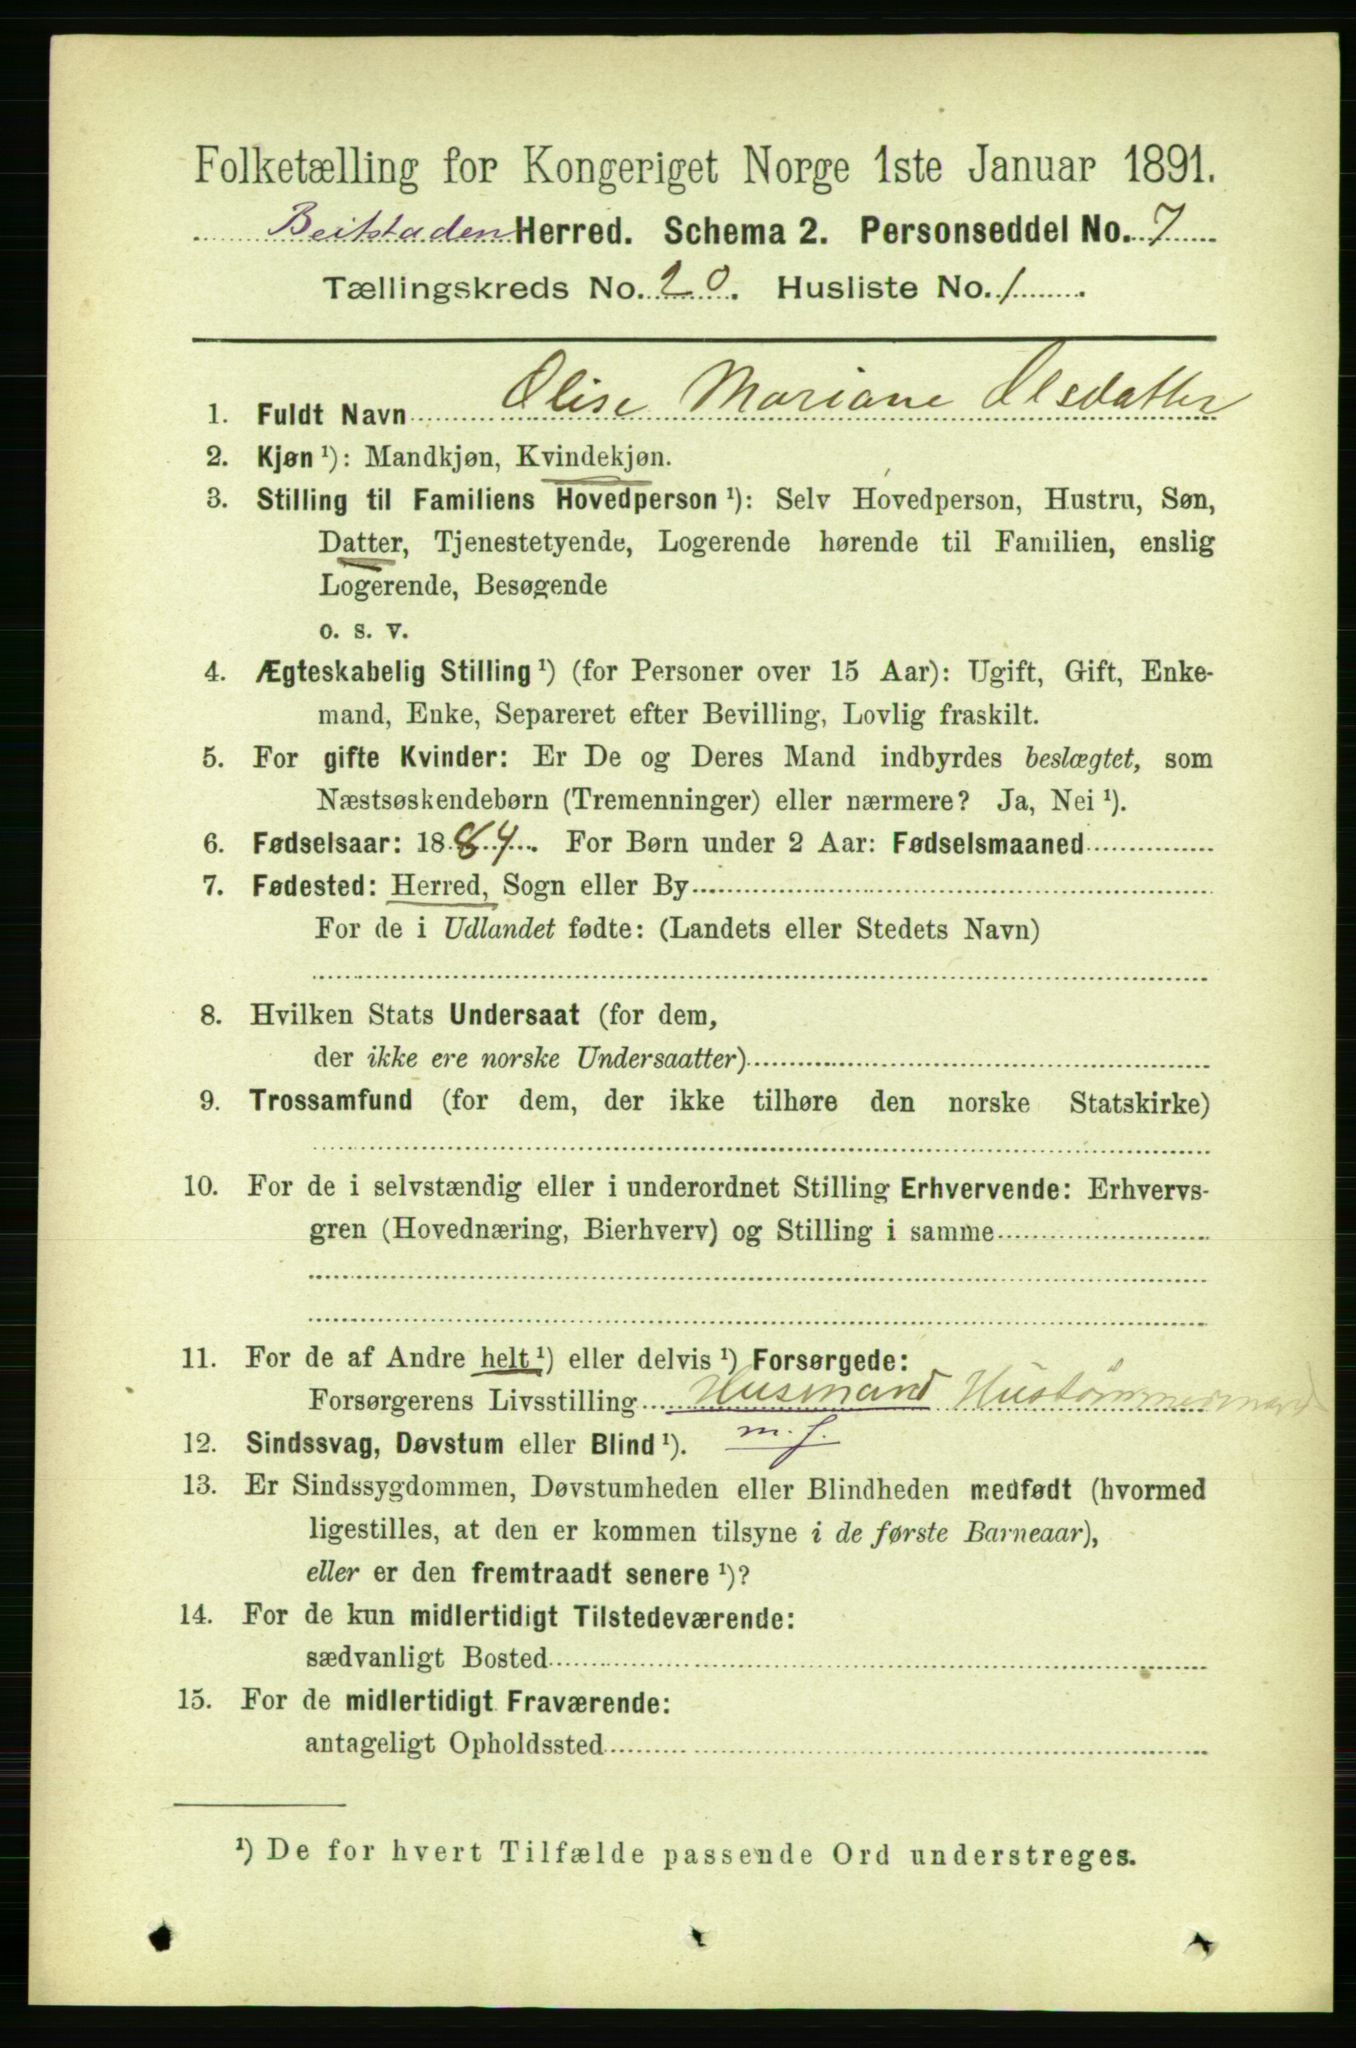 Folketælling for Kongeriget Norge 1ste Januar 1891.
Beitstaden Herred. Schema 2. Personseddel No. 7
Tællingskreds No. 20. Husliste No. 1
1. Fuldt Navn Olise Mariane Olsdatter
2. Kjøn ¹): Mandkjøn, Kvindekjøn.
3. Stilling til Familiens Hovedperson ¹): Selv Hovedperson, Hustru, Søn,
Datter, Tjenestetyende, Logerende hørende til Familien, enslig
Logerende, Besøgende
o. s. v.
4. Ægteskabelig Stilling ¹) (for Personer over 15 Aar): Ugift, Gift, Enke-
mand, Enke, Separeret efter Bevilling, Lovlig fraskilt.
5. For gifte Kvinder: Er De og Deres Mand indbyrdes beslægtet, som
Næstsøskendebørn (Tremenninger) eller nærmere? Ja, Nei ¹).
6. Fødselsaar: 1884. For Børn under 2 Aar: Fødselsmaaned
7. Fødested: Herred, Sogn eller By
For de i Udlandet fødte: (Landets eller Stedets Navn)
8. Hvilken Stats Undersaat (for dem,
der ikke ere norske Undersaatter)
9. Trossamfund (for dem, der ikke tilhøre den norske Statskirke)
10. For de i selvstændig eller i underordnet Stilling Erhvervende: Erhvervs-
gren (Hovednæring, Bierhverv) og Stilling i samme
11. For de af Andre helt ¹) eller delvis ¹) Forsørgede:
Forsørgerens Livsstilling Husmand Hustømmermand
12. Sindssvag, Døvstum eller Blind ¹). m. j.
13. Er Sindssygdommen, Døvstumheden eller Blindheden medfødt (hvormed
ligestilles, at den er kommen tilsyne i de første Barneaar),
eller er den fremtraadt senere ¹)?
14. For de kun midlertidigt Tilstedeværende:
sædvanligt Bosted
15. For de midlertidigt Fraværende:
antageligt Opholdssted
¹) De for hvert Tilfælde passende Ord understreges.